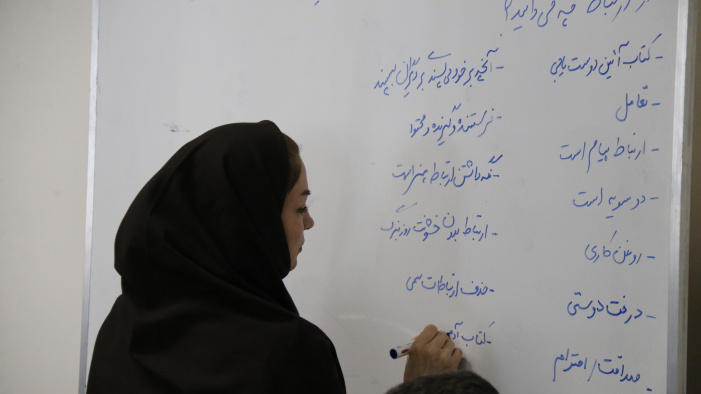 از ارتباط چه می دانید؟
- کتاب آئین دوست یابی
- تعامل
- ارتباط پیام است
- دو سویه است
- روغن کاری
- درخت دوستی
- صداقت / احترام
- آنچه بر خود می پسندی بر دیگران بپسند
- فرستنده و گیرنده و محتوا
- نگه داشتن ارتباط هنر است
- ارتباط بدون خشونت
- حذف ارتباطات سمی
- کتاب